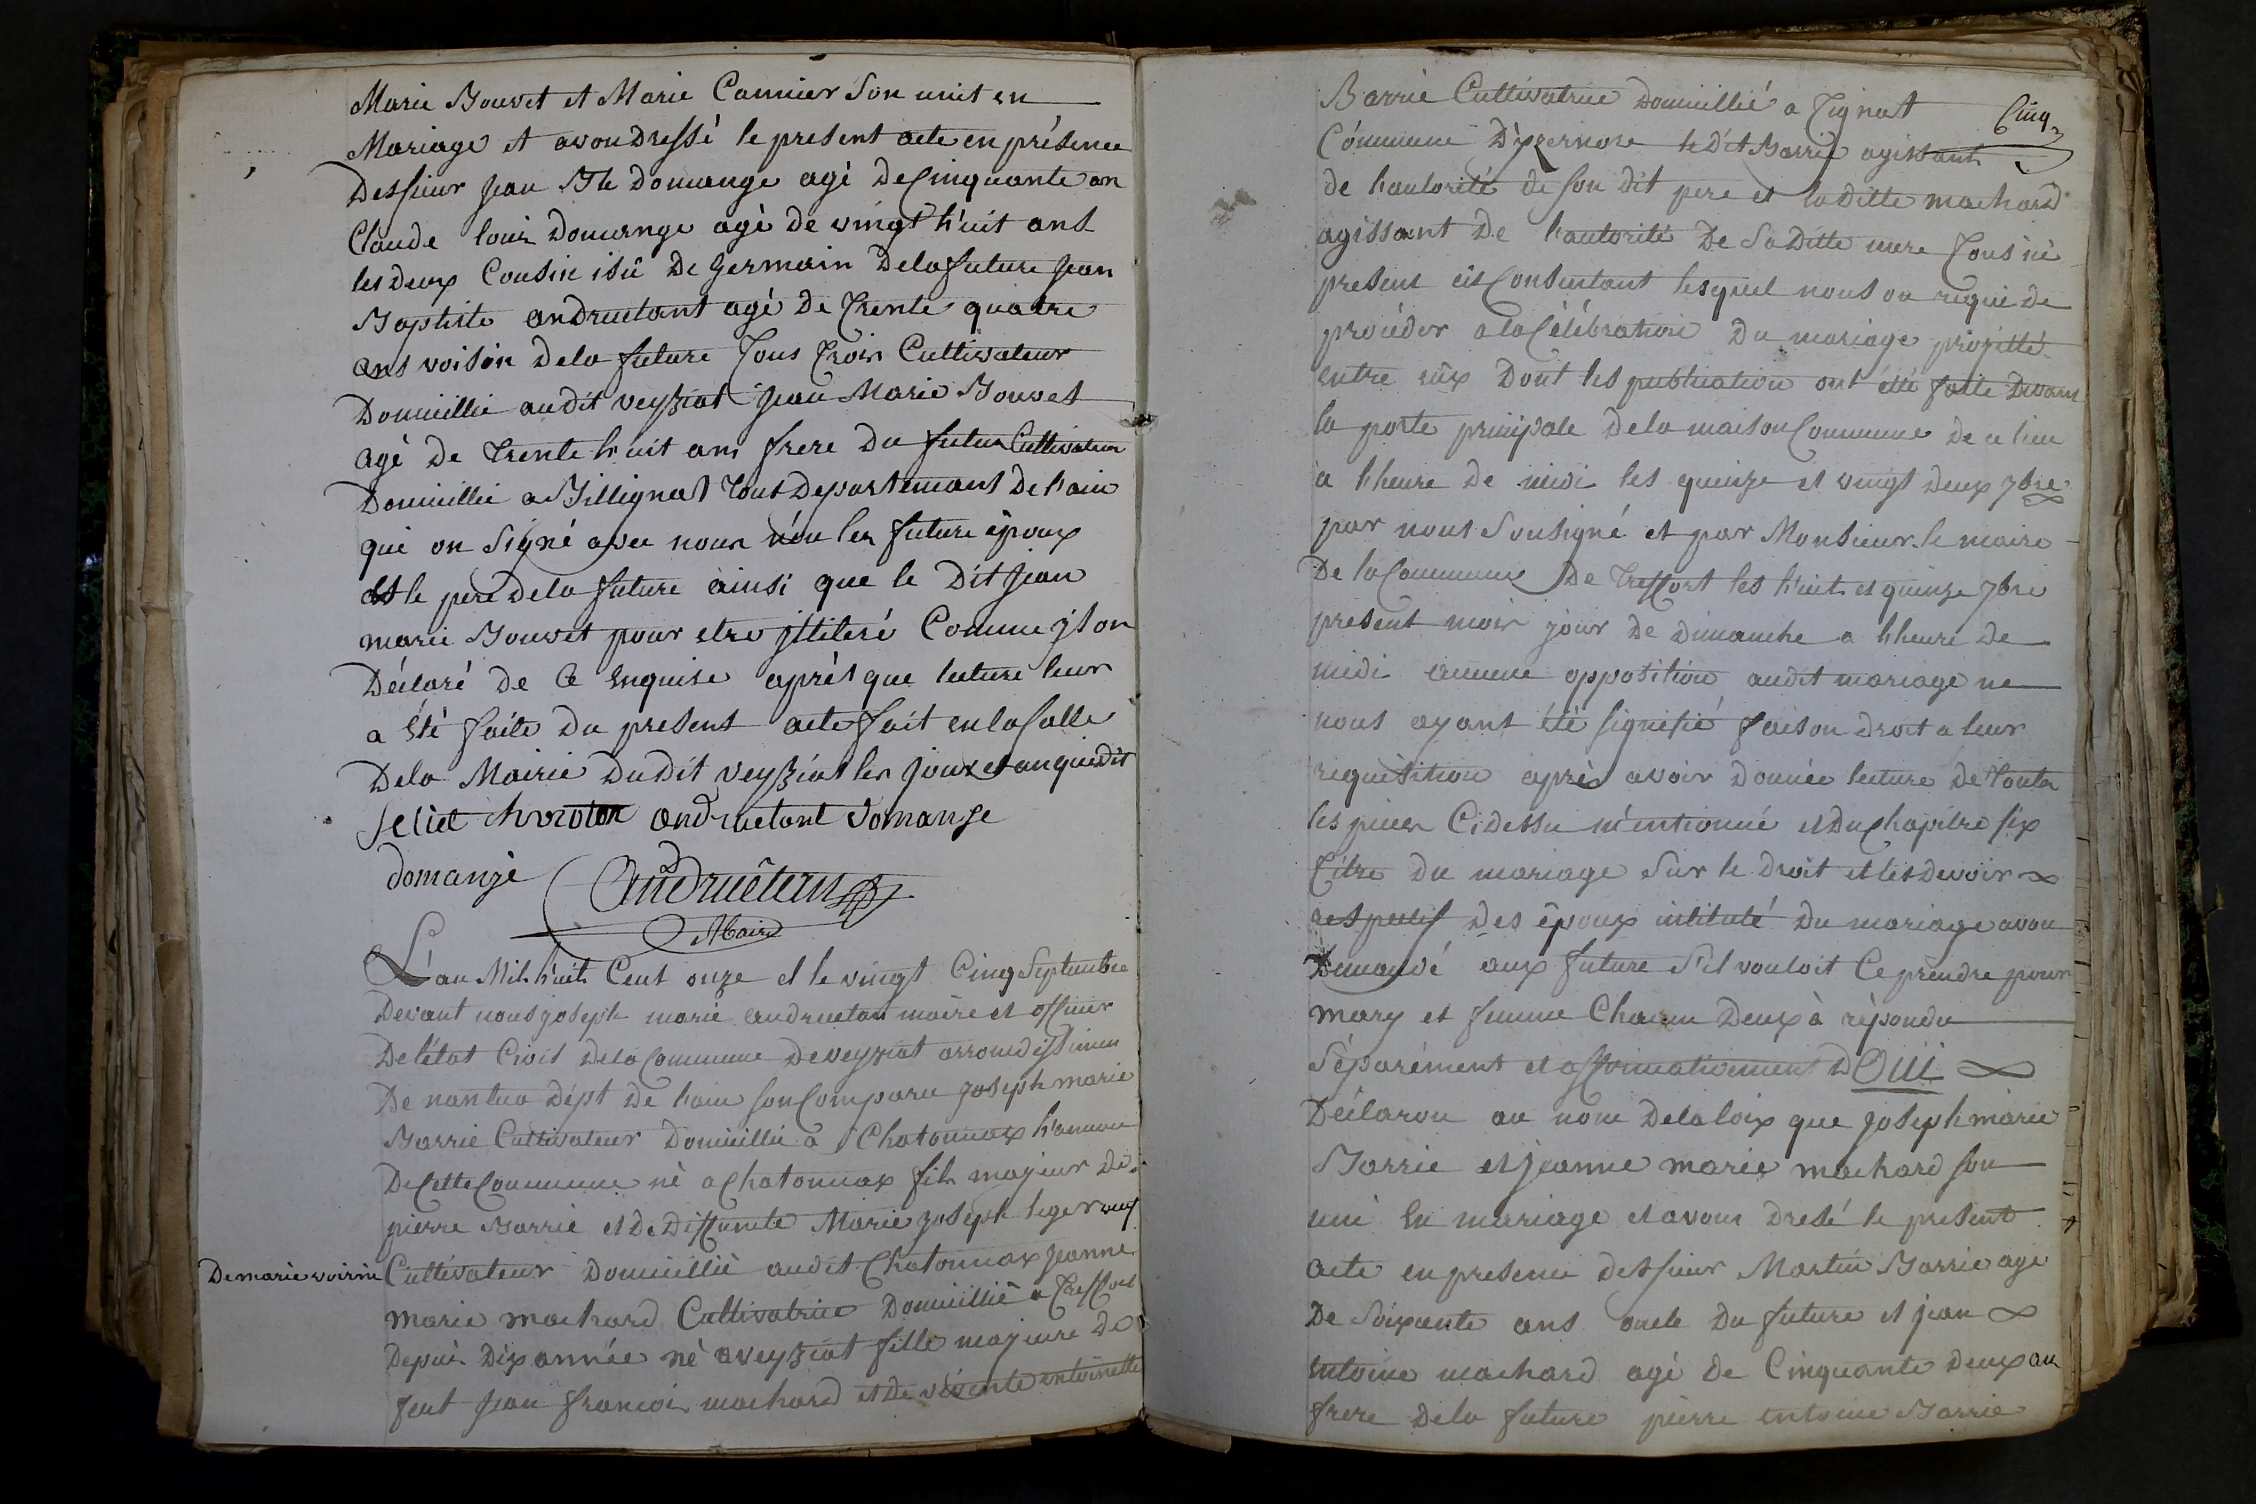 Marie Bouvet et Marie Cannier Son unit en
Mariage et avon dressé le present acte en présence
Dessieur jean Bte Domange agé De Cinquante an
Claude louis Domange agé de vingt huit ans
les deux Cousin isû De Germain Dela future jean
Baptiste andruetant agé De trente quatre
ans voisin Dela future tous trois Cultivateur
Domicillié audit veyziat jean Marie Bouvet
agé De trente huit ans frere Du futur Cultivateur
Domicillié a Billignat tout Departemant De l'ain
qui on Signé avec nous non les future époux
et le pere dela future ainsi que le Dit jean
marie Bouvet pour etre jlliteré Comme jl on
Déclaré de Ce enquise après que lecture leur
a été faite Du present acte fait en la Salle
Dela Mairie Dudit veyziat les jour et an que dit
andruetant Domange
domange Andruétan
Maire
L'an Mil huit Cent onze et le vingt Cinq Septembre
Devant nous joseph marie andruetan maire et officier
De l'état Civil dela Commune de veyziat arrondissemen
De nantua dépt De l'ain son Comparu joseph marie
Barrie Cultivateur Domicillié a Chatonnax h'ameau
De Cette Commune né a Chatonnax fils majeur de
pierre Barrie et de Diffunte Marie joseph leger
Cultivateur Domicillié audit Chatonnax jeanne
marie machard Cultivatrice Domicillié a treffort
Depuis Dix année né a veyziat fille majeure De
feut jean francois machard et de vivente entoinette
De marie voirin
Barrie Cultivatrice Domicillié a tignat
Cinq
Commune D'yzernore le Dit Barrie agissant
de l'autorité de son dit pere et la ditte machard
agissant De l'autorité De Sa Ditte mere tous ici
present et Consentant lesquel nous on requi de
procéder a la Célébration Du mariage projetté
entre eûx Dont les publication ont été faite Devant
la porte principale Dela maison Commune de ce lieu
a l'heure De midi les quinze et vingt deux 7bre
par nous Sousigné et par Monsieur le maire
De la Commune De treffort les huit et quinze 7bre
present mois jour de dimanche a l'heure De
midi aucune opposition audit mariage ne
nous ayant été signifié faison droit a leur
requisition après avoir Donnée lecture de toute
les pieces Cidessu mentionné et du Chapitre six
titre Du mariage Sur le Droit et les Devoir
respectif Des époux intitulé Du mariage avon
Demandé aux future S'il vouloit Ce prendre pour
mary et femme Chacun Deux à répondu
Séparément et affirmativement OUI
Déclaron au nom Dela loix que joseph marie
Barrie et jeanne marie machard son
uni en mariage et avons dresé le present
acte en presence dessieur Martin Barrie agé
De Soixante ans oncle Du future et jean
entoine machard agé De Cinquante deux an
frere Dela future pierre entoine Barrie